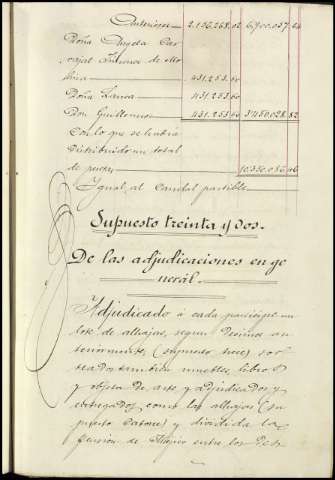 Anterior 2.156.268.02 6.900.057.24
Doña Angela Car
vajal Jimenez de Mo
lina 431.253.60
Doña Blanca 431.253.60
Don Guillermo 431.253.60 3.450.028.82
Con lo que se habia
distribuido un total
de pesetas 10.350.086.06
Igual al caudal partible
Supuesto treinta y dos.
De las adjudicaciones en ge
neral.
Adjudicado á cada participe un
lote de alhajas, segun decimos an
teriormente, (supuesto trece) sor
teados tambien muebles, libros
y objetos de arte y adjudicados y
entregados como las alhajas (su
puesto catorce) y dividida la
entre los